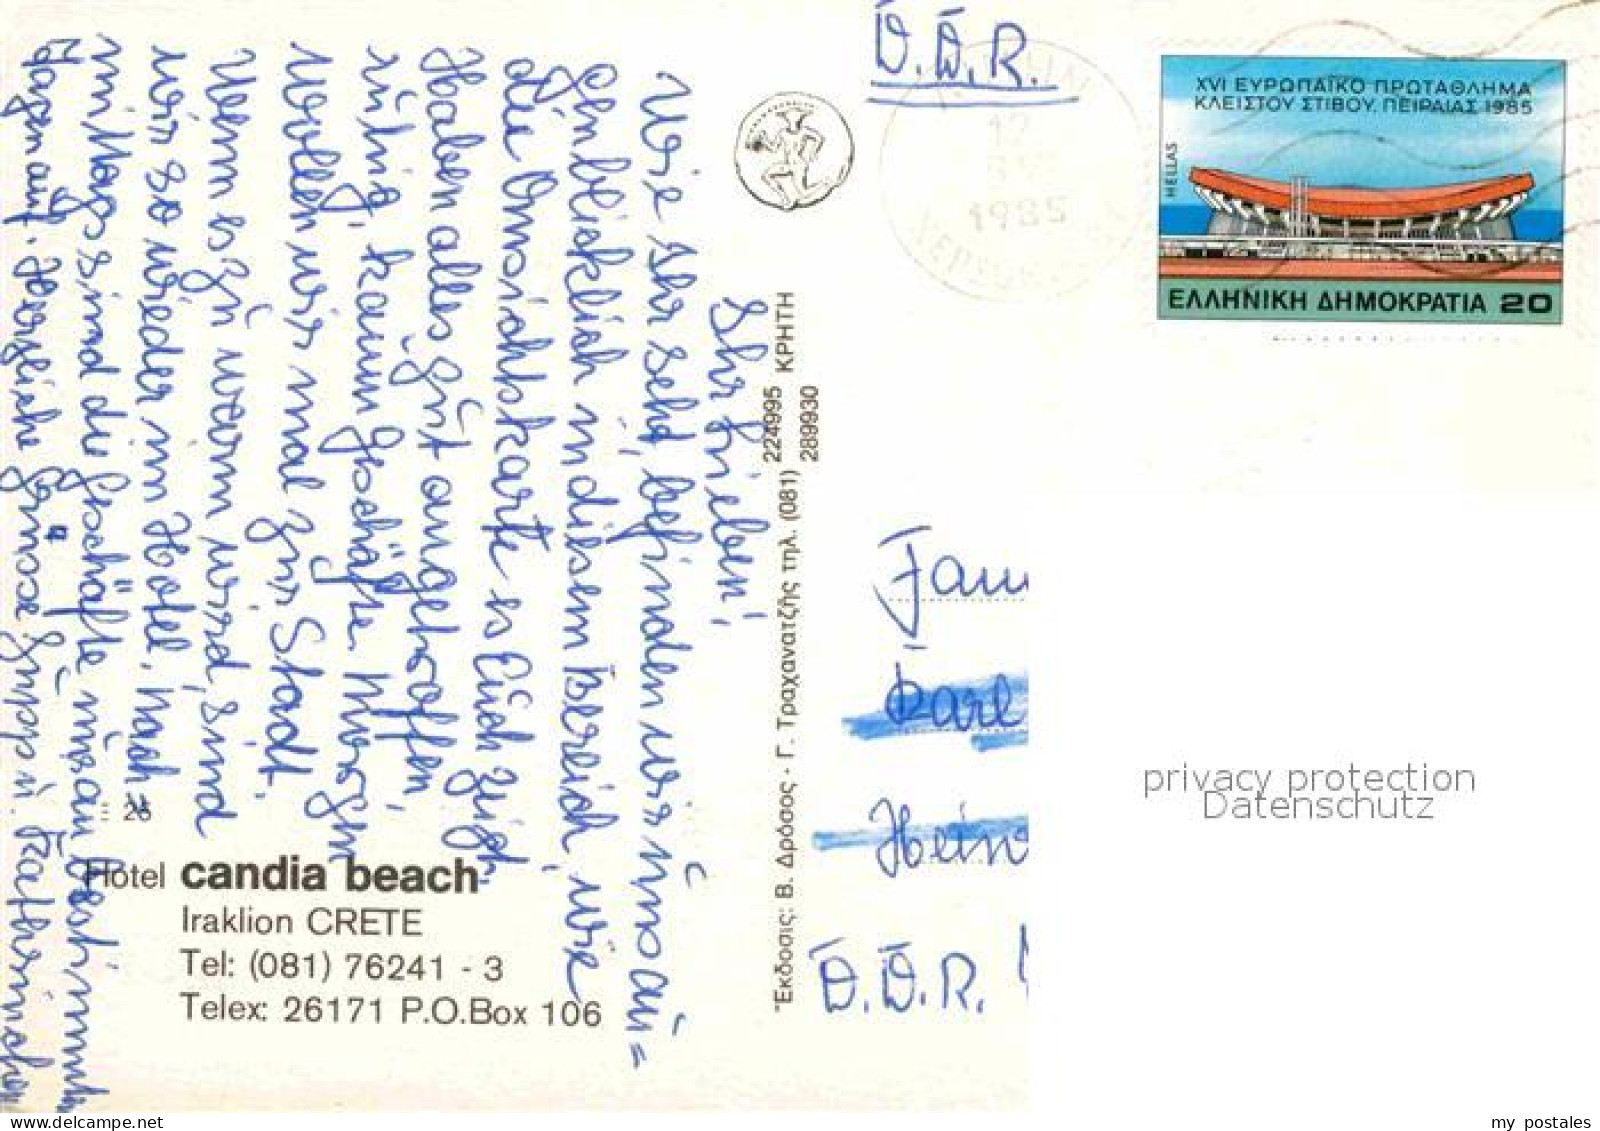 D.D.R.
XVI ΕΥΡΩΠΑΪΚΟ ΠΡΩΤΑΘΛΗΜΑ
ΚΛΕΙΣΤΟΥ ΣΤΙΒΟΥ, ΠΕΙΡΑΙΑΣ 1985
HELLAS
ΕΛΛΗΝΙΚΗ ΔΗΜΟΚΡΑΤΙΑ 20
1985
Ihr Lieben!
Wie Ihr seht, befinden wir uns au=
genblicklich in diesem Bereich, wie
die Ansichtskarte es Euch zeigt.
Haben alles gut angetroffen,
ruhig, kaum Geschäfte. Morgen
wollen wir mal zur Stadt.
Wenn es zu warm wird, sind
wir so wieder im Hotel. Nach=
mittags sind die Geschäfte
auf. Herzliche Grüsse
Έκδοσις: Β. Δρόσος - Γ. Τραχανατζής τηλ. (081) 224995 ΚΡΗΤΗ
289930
26
Hotel candia beach
Iraklion CRETE
Tel: (081) 76241 - 3
Telex: 26171 P.O.Box 106
Fam
Karl
Hein
D.D.R.
privacy protection
Datenschutz
www.delcampe.net
my_postales